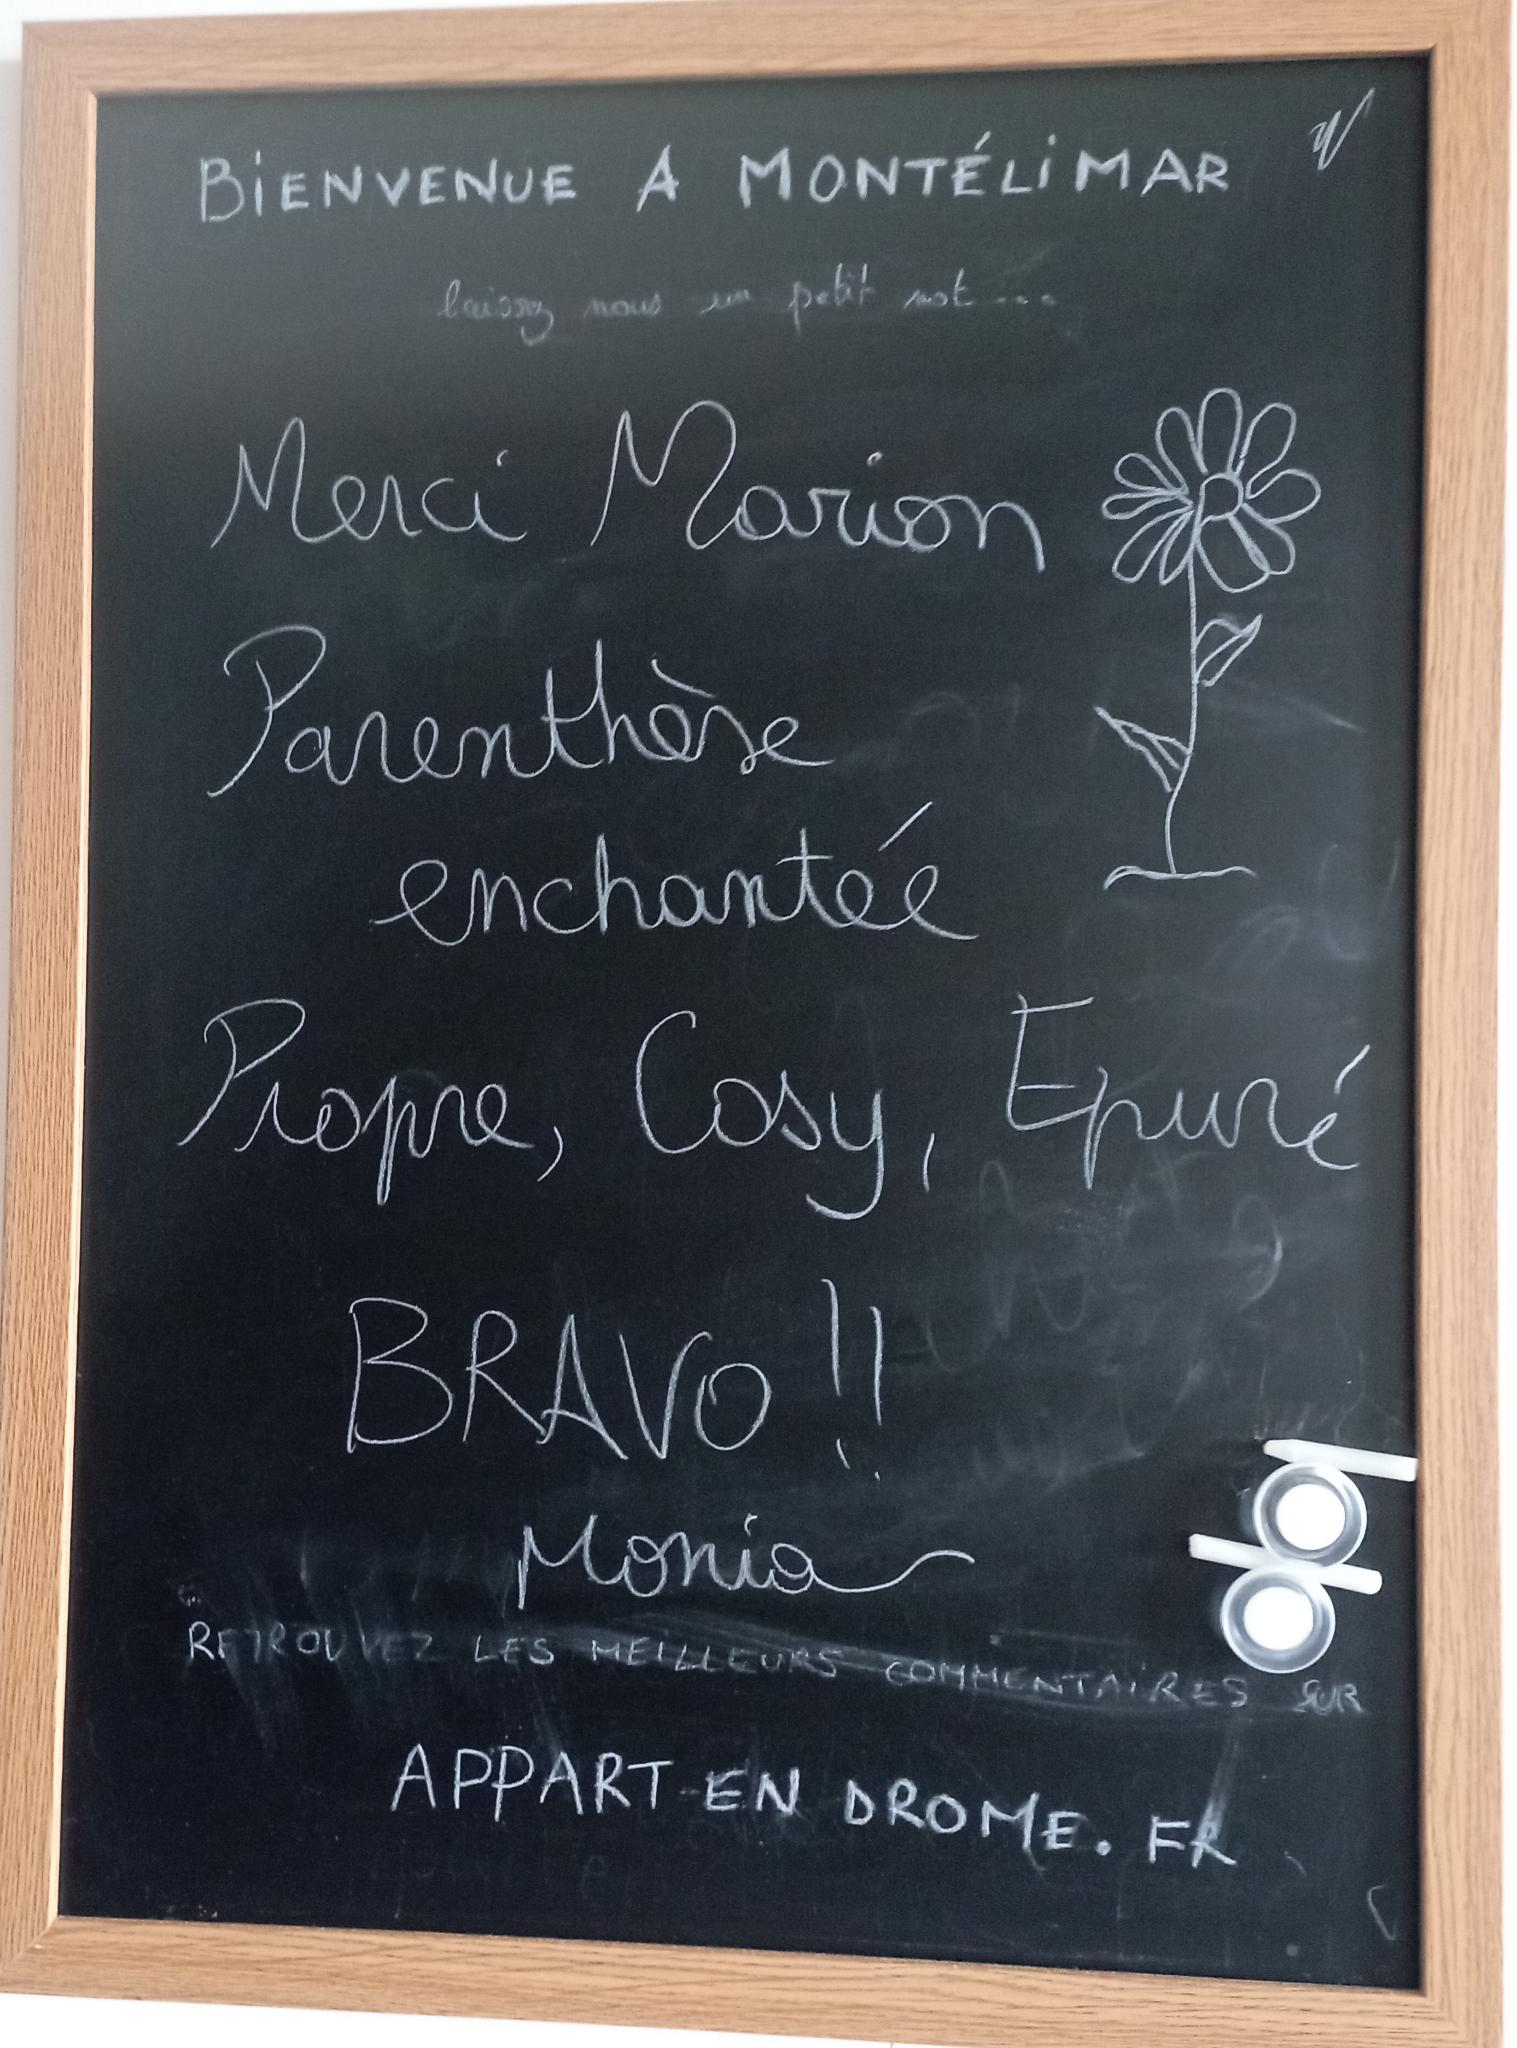 BiENVENUE A MONTÉLiMAR
laissez nous un petit mot...
Merci Marion
Parenthèse
enchantée
Propre, Cosy, Epuré
BRAVO !!
Monia
RETROUVEZ LES MEILLEURS COMMENTAiRES SUR
APPART-EN DROME.FR